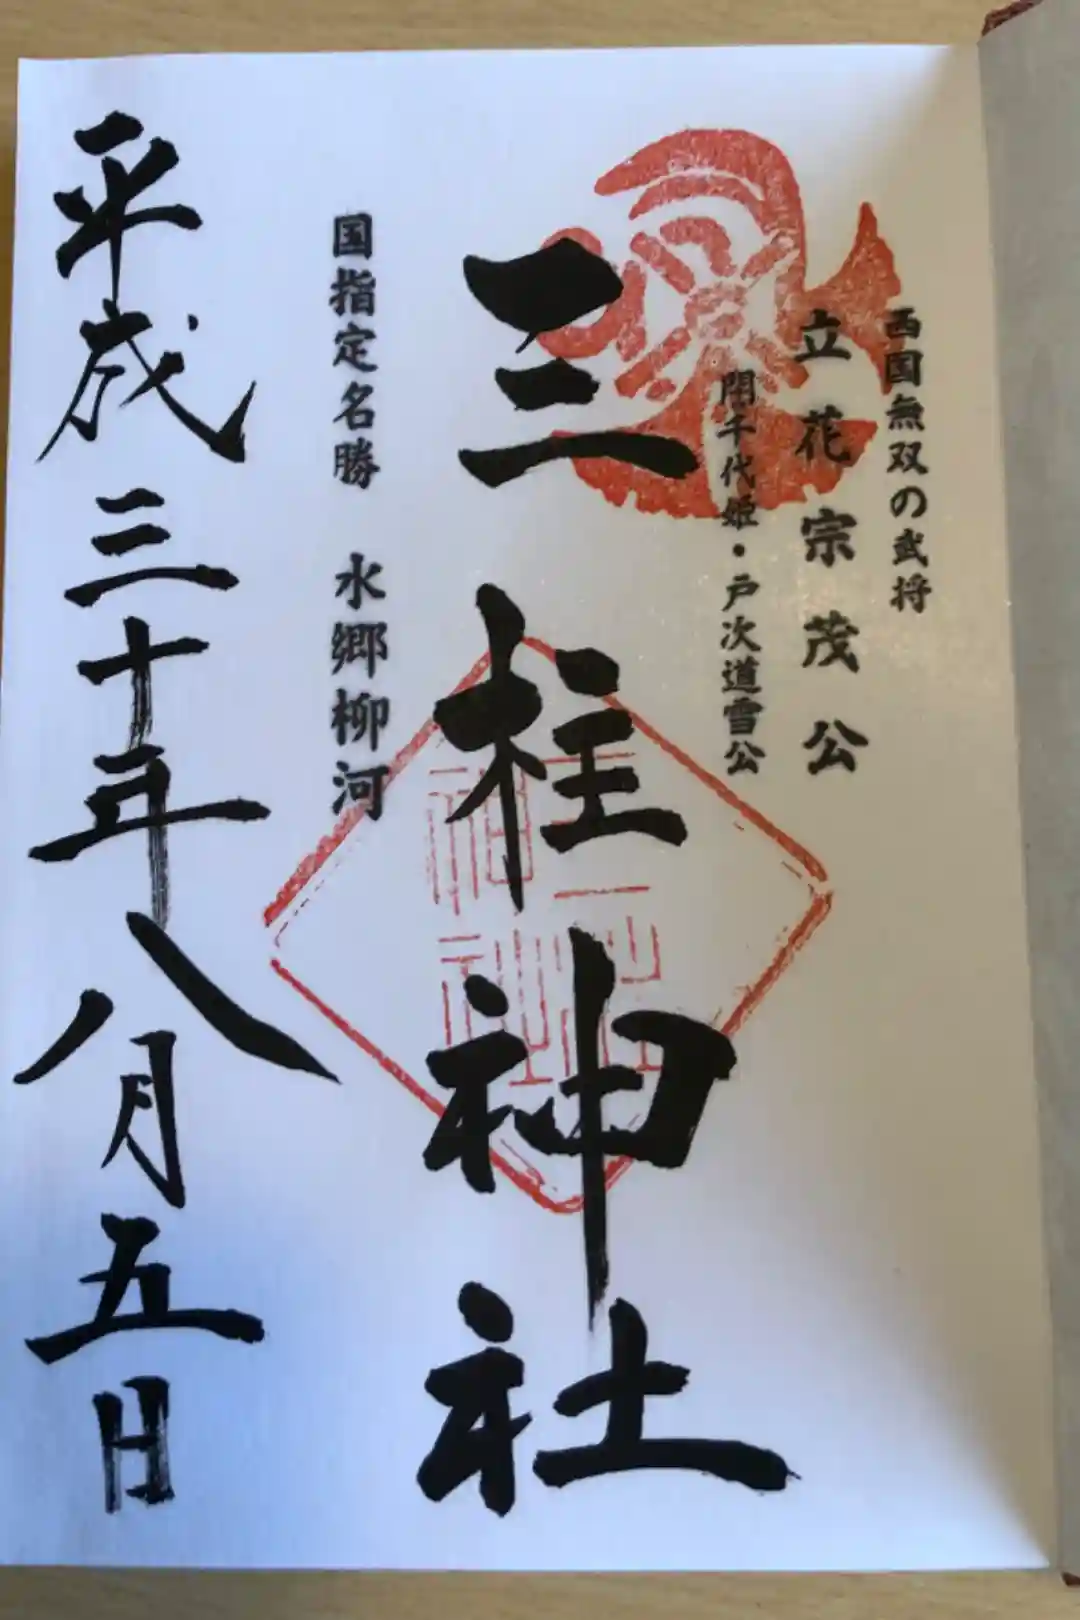 西国無双の武将
立花宗茂公
誾千代姫・戸次道雪公
三柱神社
国指定名勝 水郷柳河
平成三十年八月五日